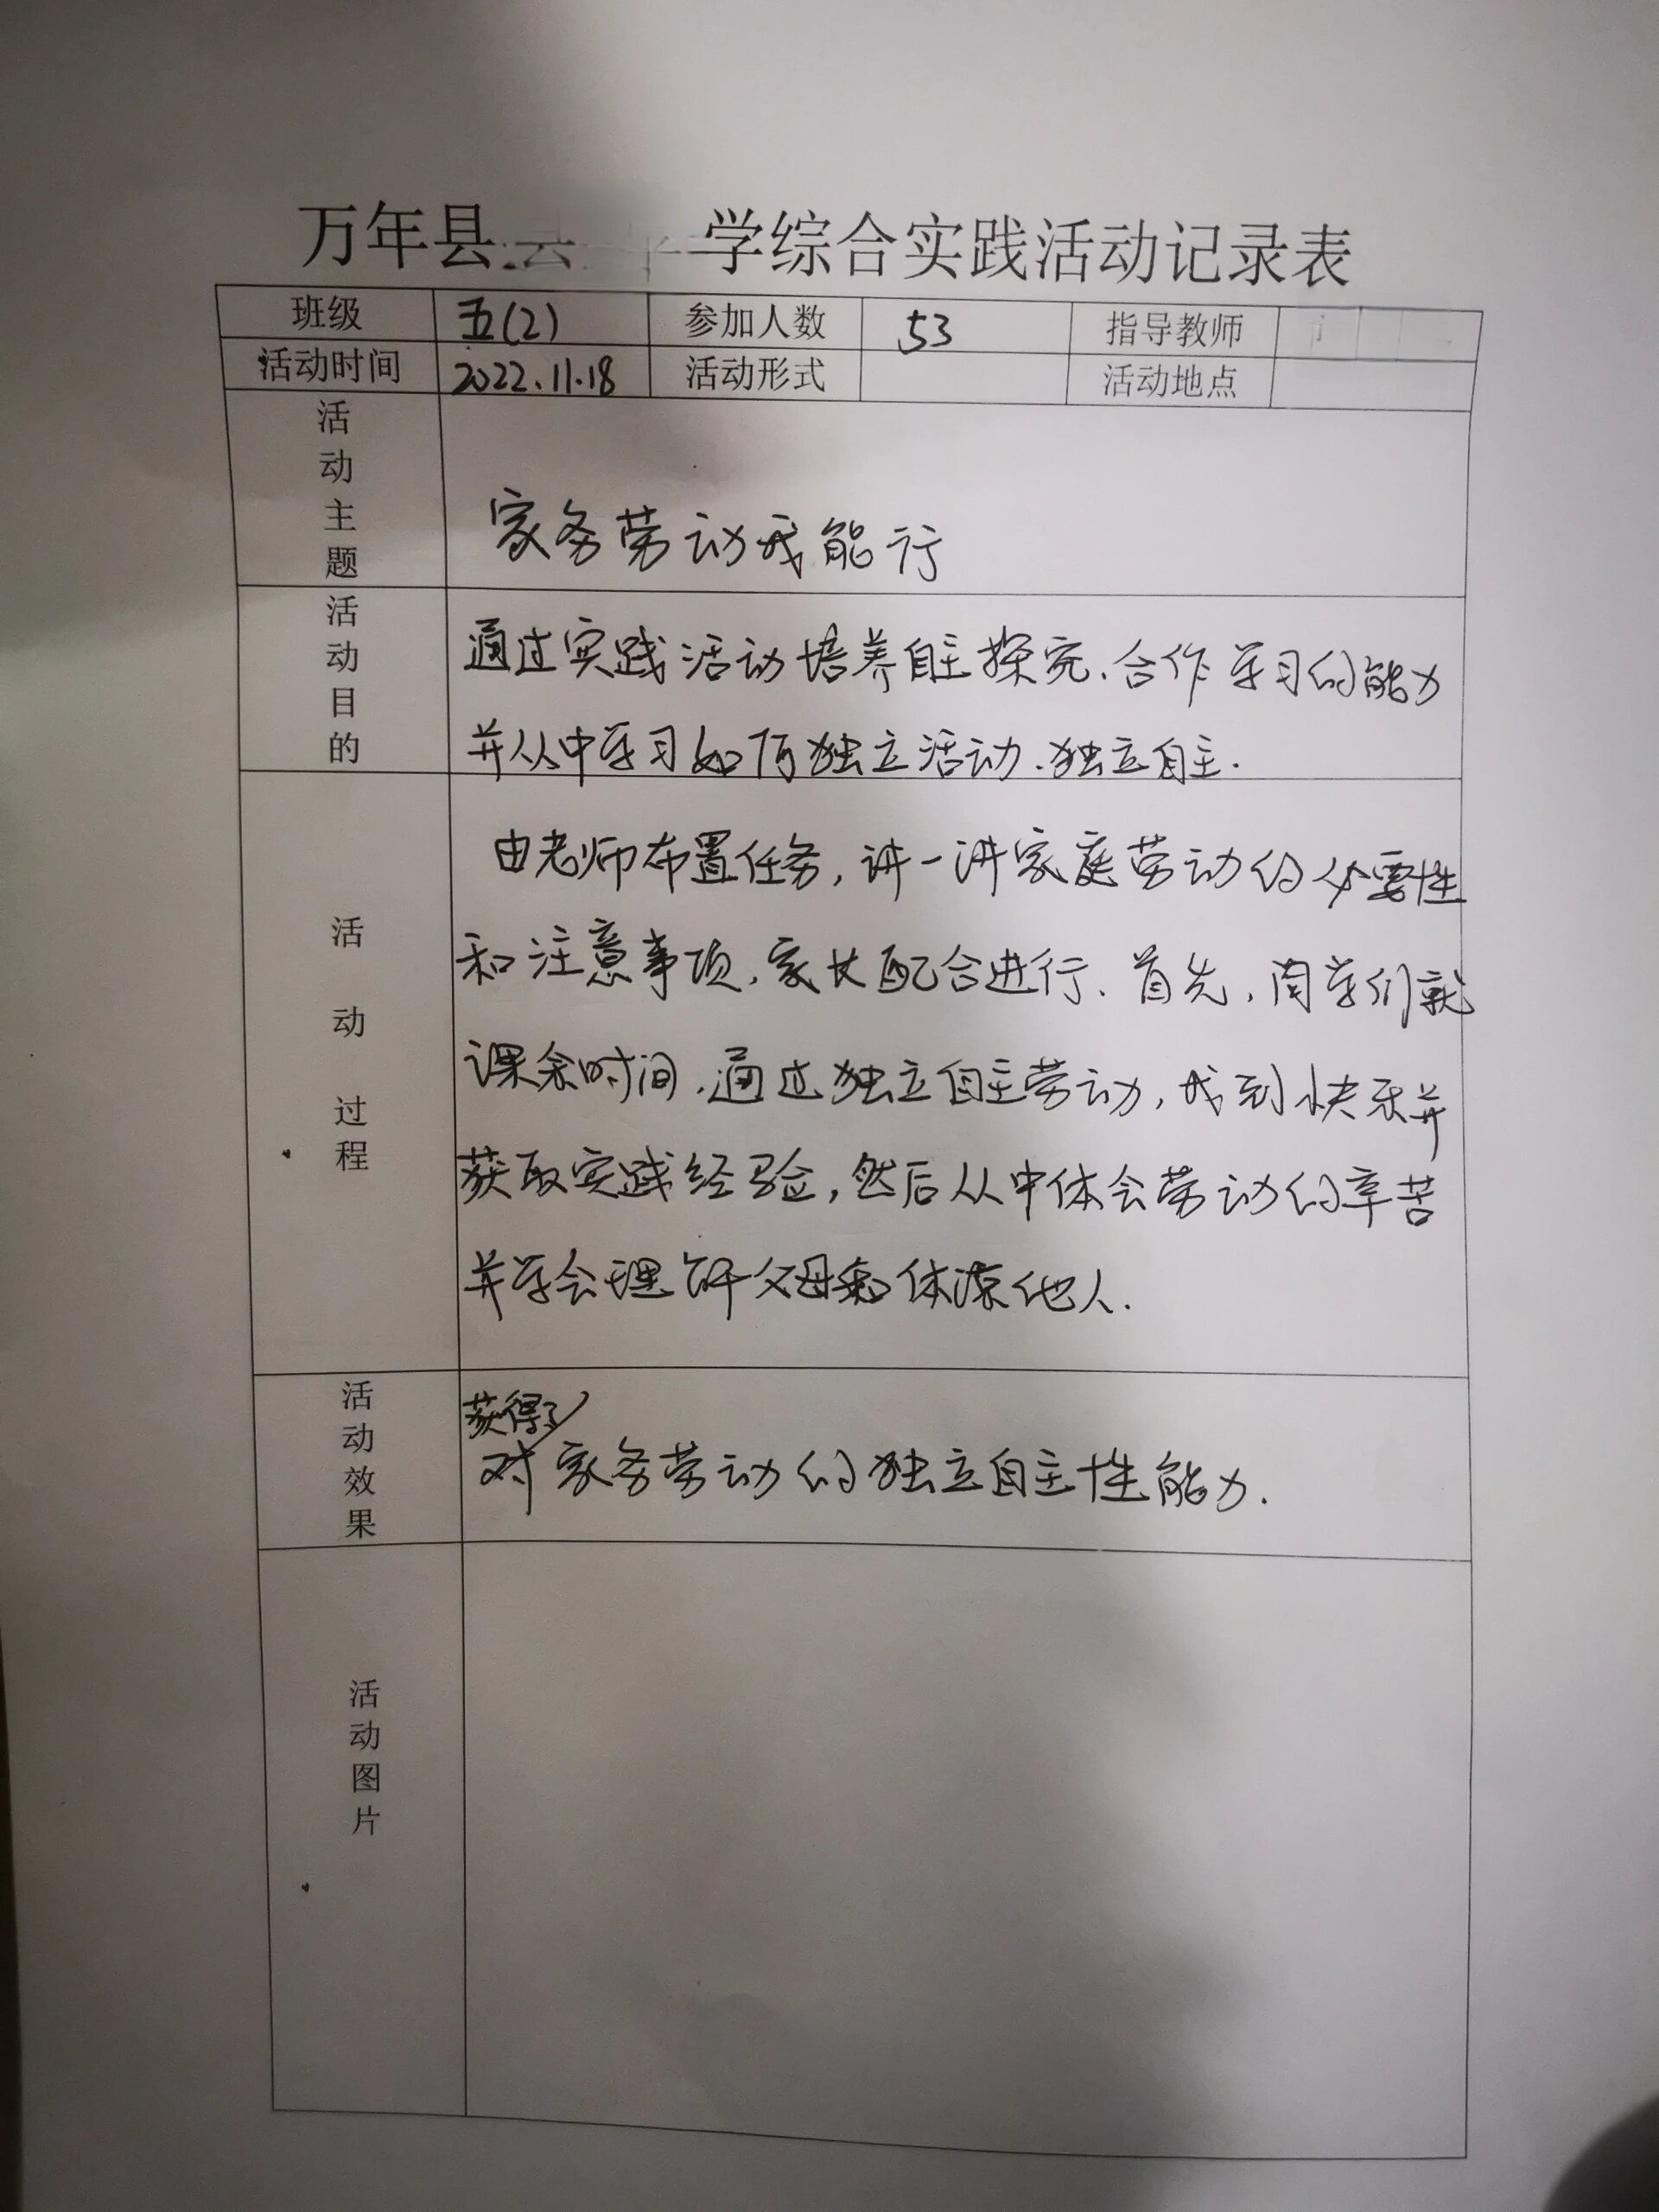 万年县 学综合实践活动记录表
班级 五(2) 参加人数 53 指导教师
活动时间 2022.11.18 活动形式 活动地点
活动主题
家务劳动我能行
活动目的
通过实践活动培养自主探究、合作学习的能力
并从中学习如何独立活动、独立自主.
活动过程
由老师布置任务,讲一讲家庭劳动的必要性
和注意事项、家长配合进行、首先,同学们就
课余时间、通过独立自主劳动,找到快乐并
获取实践经验,然后从中体会劳动的辛苦
并学会理解父母和体谅他人.
活动效果
获得了
对家务劳动的独立自主性能力.
活动图片